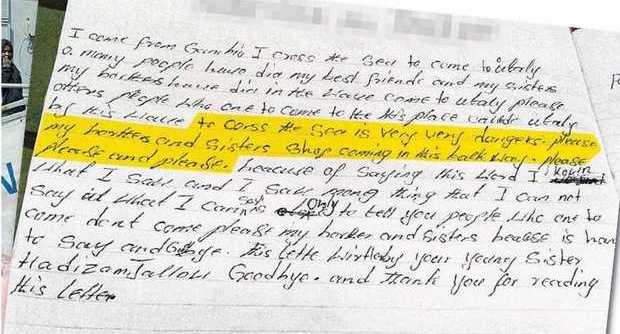 I come from Gambia I cross the sea to come to utaly
a many people have dia my best friends and my sisters
my borkers have dia in the Liave come to utaly please
others people Like one to come to the this place calldt utaly
by this Liave to corss the Sea is Very Very dangers. please
my borkters and Sisters Shop coming in this batk Way. please
please and please. because of Saying this Word I know
What I Saw and I Saw meng thing that I can not
Say it What I can say is only to tell you people Like one to
come dont come please my borker and Sisters bealse is hard
to Say and Gobye. this Lette Writh by your young Sister
Hadizam Jallow Goodbye. and thank You for reading
this Letter